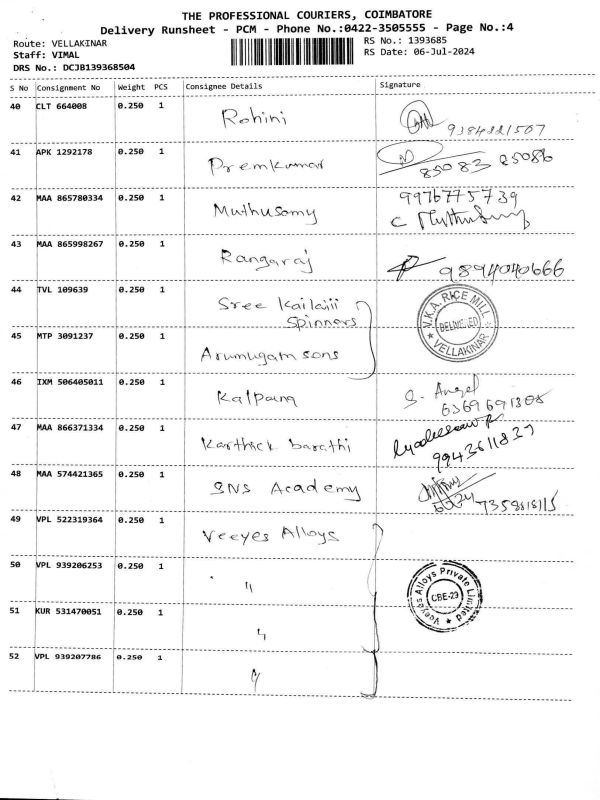 THE PROFESSIONAL COURIERS, COIMBATORE
Delivery Runsheet - PCM - Phone No.:0422-3505555 - Page No.:4
Route: VELLAKINAR
Staff: VIMAL
DRS No.: DCJB139368504
RS No.: 1393685
RS Date: 06-Jul-2024
S No Consignment No Weight PCS Consignee Details Signature
40 CLT 664008 0.250 1 Rohini
41 APK 1292178 0.250 1 Premkumar 85083 25086
42 MAA 865780334 0.250 1 Muthusamy 9976775739
43 MAA 865998267 0.250 1 Rangaraj 9894040666
44 TVL 109639 0.250 1 Sree Kailaiii Spinners
V.K.A. RICE MILL
DELIVERED
VELLAKINAR
45 MTP 3091237 0.250 1 Arumugam sons
46 IXM 506405011 0.250 1 Kalpana S. Angel
47 MAA 866371334 0.250 1 Karthick barathi 9943611837
48 MAA 574421365 0.250 1 SNS Academy
49 VPL 522319364 0.250 1 Veeyes Alloys
50 VPL 939206253 0.250 1 "
Veeyes Alloys Private Limited
CBE-29
51 KUR 531470051 0.250 1 "
52 VPL 939207786 0.250 1 "